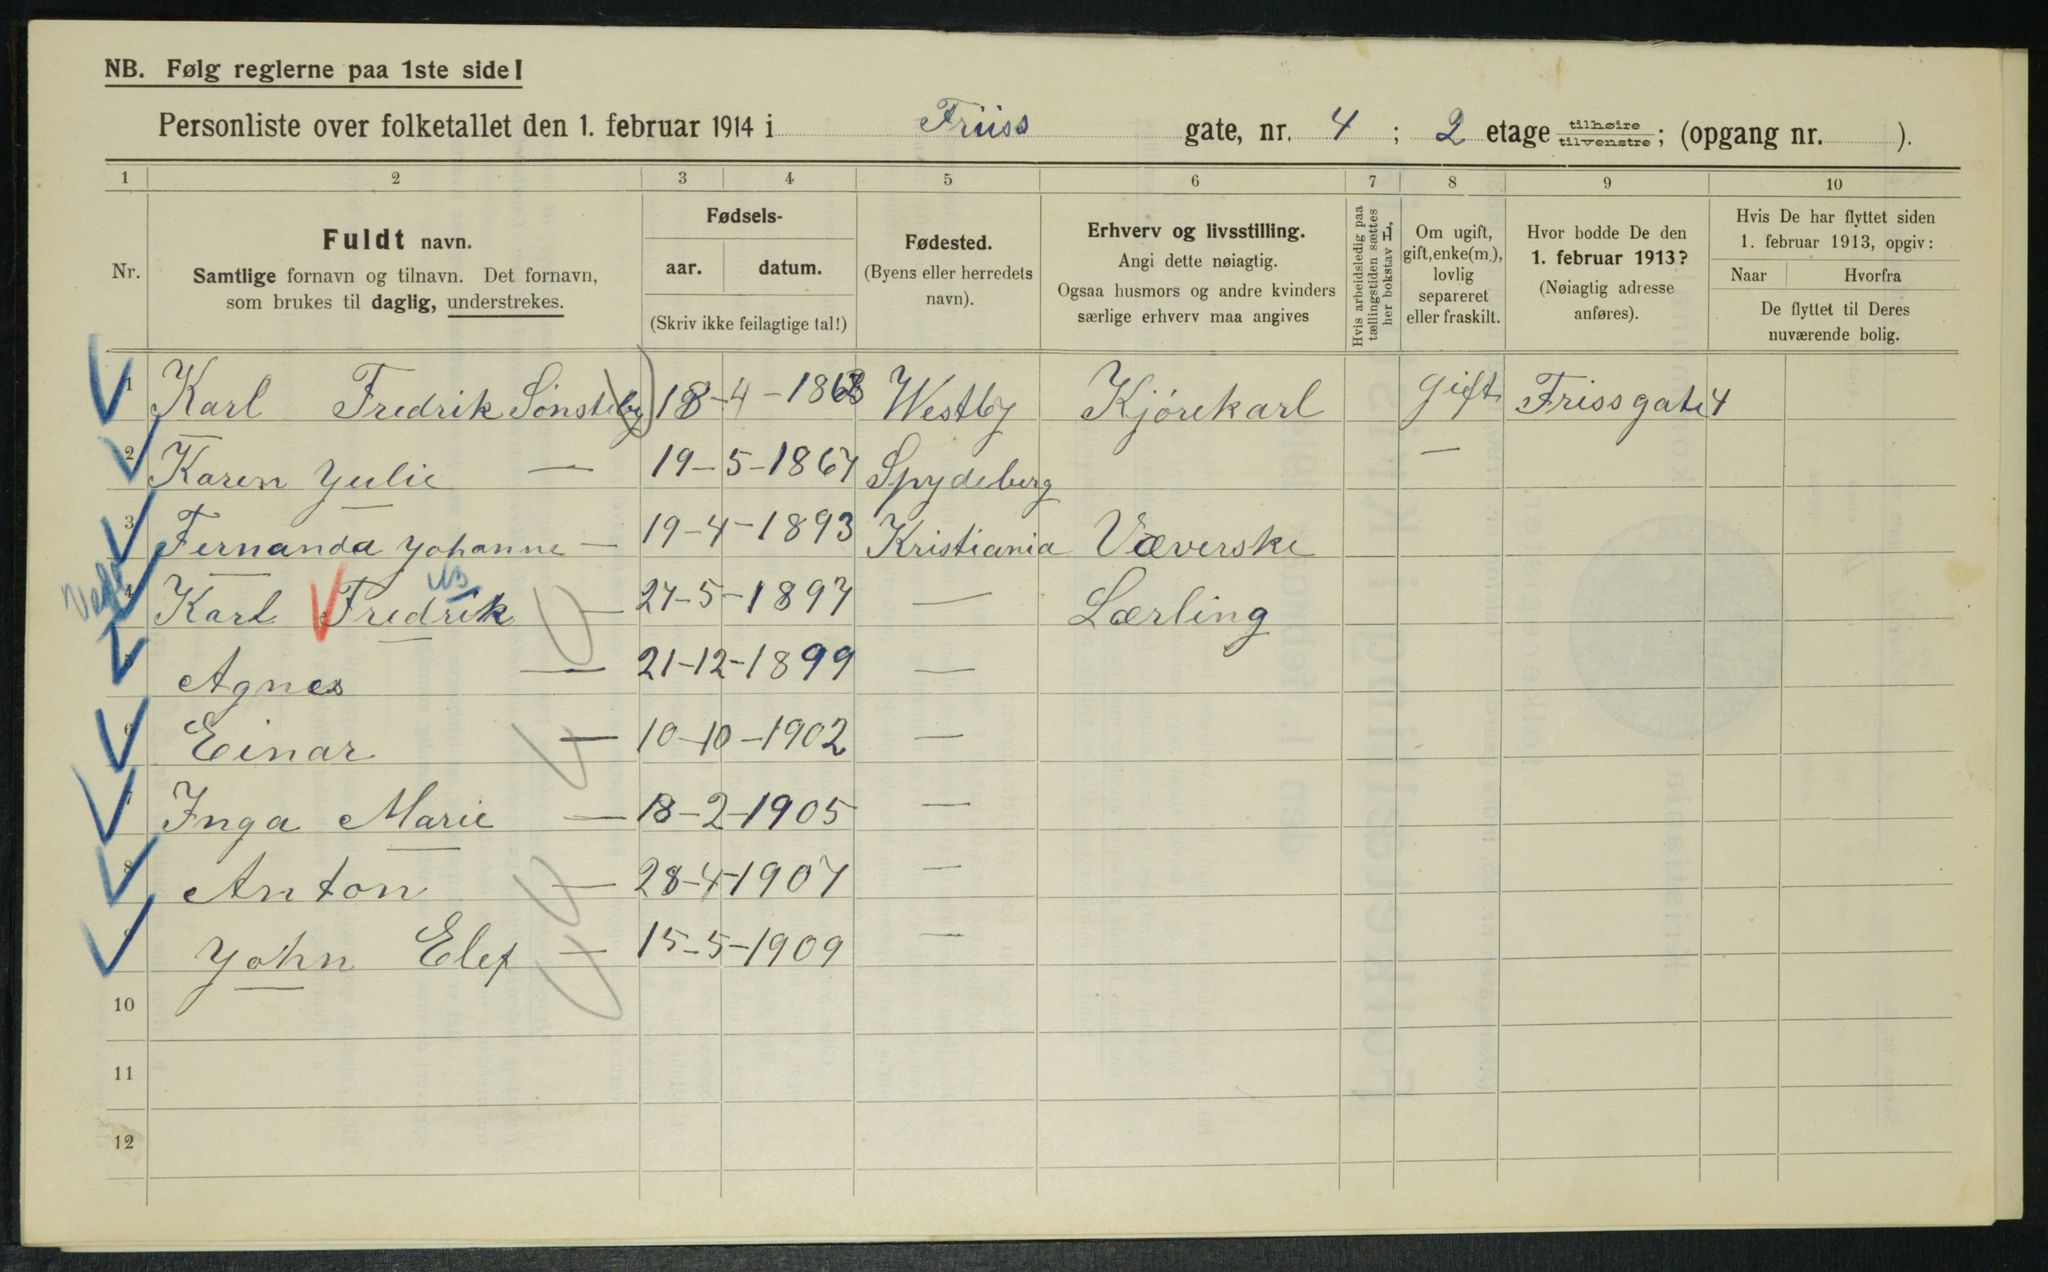 NB. Følg reglerne paa 1ste side!
Personliste over folketallet den 1. februar 1914 i Friiss gate, nr. 4 ; 2 etage tilhøire tilvenstre; (opgang nr. ).
1 2 3 4 5 6 7 8 9 10
Nr.
Fuldt navn.
Samtlige fornavn og tilnavn. Det fornavn,
som brukes til daglig, understrekes.
Fødsels-
aar. datum.
(Skriv ikke feilagtige tal!)
Fødested.
(Byens eller herredets
navn).
Erhverv og livsstilling.
Angi dette nøiagtig.
Ogsaa husmors og andre kvinders
særlige erhverv maa angives
Hvis arbeidsledig paa
tællingstiden sættes
her bokstav L.
Om ugift,
gift, enke(m.),
lovlig
separeret
eller fraskilt.
Hvor bodde De den
1. februar 1913?
(Nøiagtig adresse
anføres).
Hvis De har flyttet siden
1. februar 1913, opgiv:
Naar Hvorfra
De flyttet til Deres
nuværende bolig.
1 Karl Fredrik Sønsteby 18-4-1868 Westby Kjørekarl gift Frissgate 4
2 Karen Yulie — 19-5-1867 Spydeberg —
3 Fernanda Yohanne — 19-4-1893 Kristiania Væverske
4 Karl Fredrik — 27-5-1897 — Lærling
5 Agnes — 21-12-1899 —
6 Einar — 10-10-1902 —
7 Inga Marie — 18-2-1905 —
8 Anton — 28-4-1907 —
9 Yohn Elef — 15-5-1909 —
10
11
12